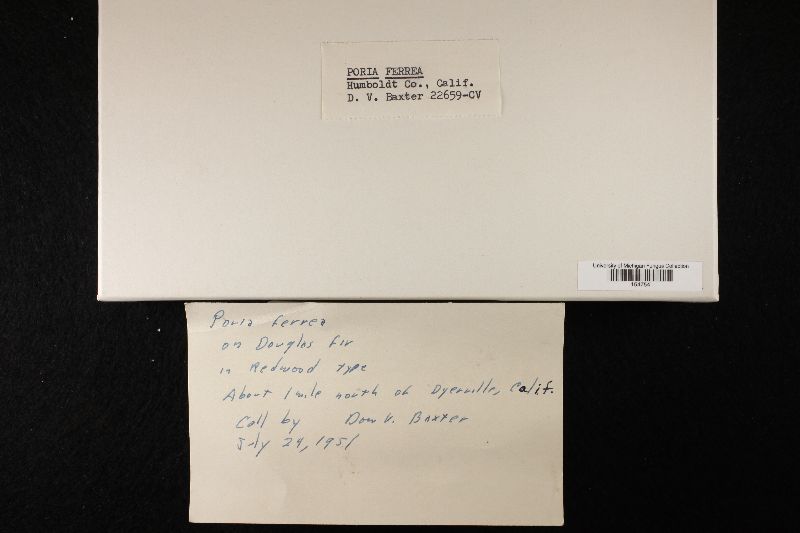 PORIA FERREA
Humboldt Co., Calif.
D. V. Baxter 22659-CV
University of Michigan Fungus Collection
Poria ferrea
on Douglas fir
in Redwood type
About 1 mile north of Dyerville, Calif.
Coll by Dow V. Baxter
July 24, 1951